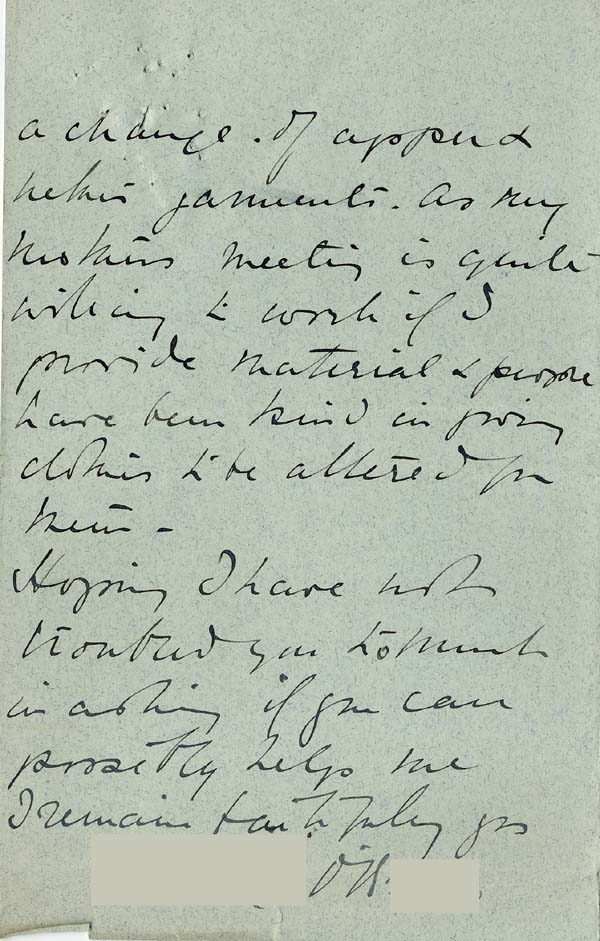 a change. Of upper &
nether garments. As my
mothers meeting is quite
willing to work if I
provide material & people
have been kind in giving
clothes to be altered for
them -
Hoping I have not
troubled you to much
in asking if you can
possibly help me
I remain faithfully yrs